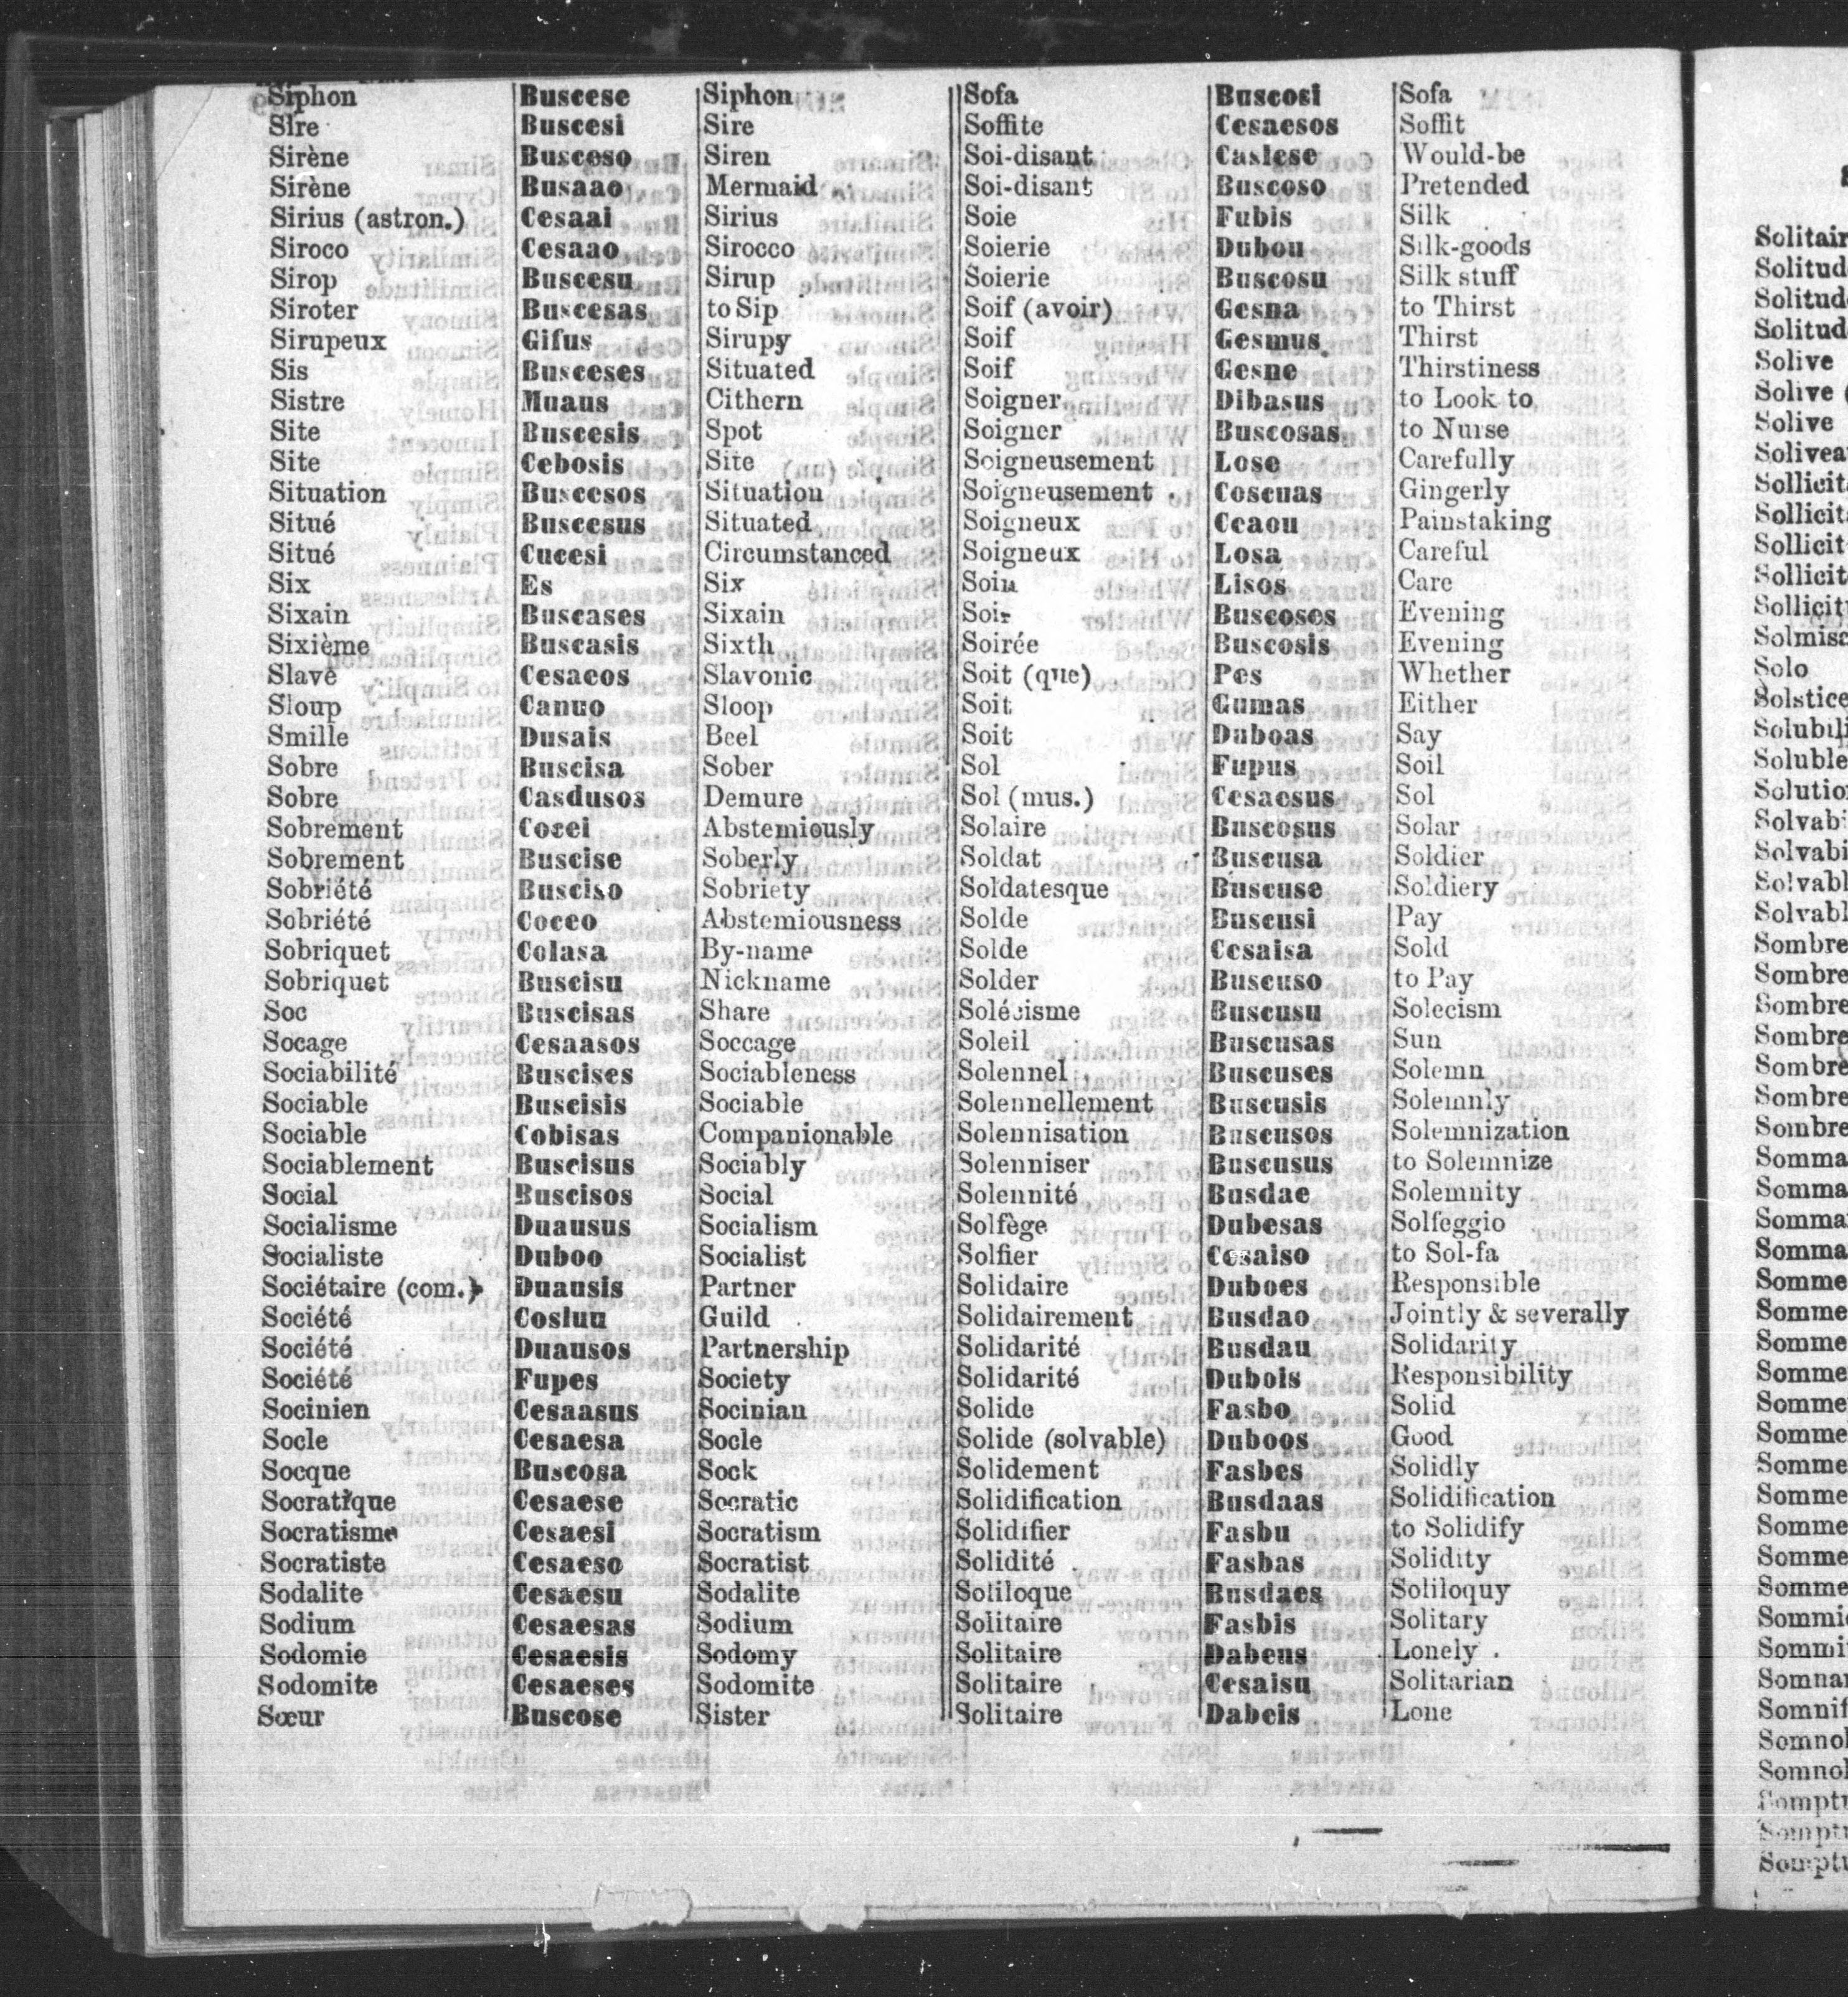 Siphon Buscese Siphon
Sire Buscesi Sire
Sirène Busceso Siren
Sirène Busaao Mermaid
Sirius (astron.) Cesaai Sirius
Siroco Cesaao Sirocco
Sirop Buscesu Sirup
Siroter Buscesas to Sip
Sirupeux Gifus Sirupy
Sis Busceses Situated
Sistre Muaus Cithern
Site Buscesis Spot
Site Cebosis Site
Situation Buscesos Situation
Situé Buscesus Situated
Situé Cucesi Circumstanced
Six Es Six
Sixain Buscases Sixain
Sixième Buscasis Sixth
Slave Cesacos Slavonic
Sloup Canuo Sloop
Smille Dusais Beel
Sobre Buscisa Sober
Sobre Casdusos Demure
Sobrement Abstemiously
Sobrement Buscise Soberly
Sobriété Busciso Sobriety
Sobriété Cocco Abstemiousness
Sobriquet Colasa By-name
Sobriquet Buscisu Nickname
Soc Buscisas Share
Socage Cesaasos Soccage
Sociabilité Buscises Sociableness
Sociable Buscisis Sociable
Sociable Cobisas Companionable
Sociablement Buscisus Sociably
Social Buscisos Social
Socialisme Duausus Socialism
Socialiste Duboo Socialist
Sociétaire (com.) Duausis Partner
Société Cosluu Guild
Société Duausos Partnership
Société Fupes Society
Socinien Cesaasus Socinian
Socle Cesaesa Socle
Socque Buscosa Sock
Socratique Cesaese Socratic
Socratisme Cesaesi Socratism
Socratiste Cesaeso Socratist
Sodalite Cesaesu Sodalite
Sodium Cesaesas Sodium
Sodomie Cesaesis Sodomy
Sodomite Cesaeses Sodomite
Sœur Buscose Sister
Sofa Buscosi Sofa
Soffite Cesaesos Soffit
Soi-disant Caslese Would-be
Soi-disant Buscoso Pretended
Soie Fubis Silk
Soierie Dubou Silk-goods
Soierie Buscosu Silk stuff
Soif (avoir) Gesna to Thirst
Soif Gesmus Thirst
Soif Gesne Thirstiness
Soigner Dibasus to Look to
Soigner Buscosas to Nurse
Soigneusement Lose Carefully
Soigneusement Coscuas Gingerly
Soigneux Ceaou Painstaking
Soigneux Losa Careful
Soin Lisos Care
Soir Buscoses Evening
Soirée Buscosis Evening
Soit (que) Pes Whether
Soit Gumas Either
Soit Duboas Say
Sol Fupus Soil
Sol (mus.) Cesaesus Sol
Solaire Buscosus Solar
Soldat Buscusa Soldier
Soldatesque Buscuse Soldiery
Solde Buscusi Pay
Solde Cesaisa Sold
Solder Buscuso to Pay
Solécisme Buscusu Solecism
Soleil Buscusas Sun
Solennel Buscuses Solemn
Solennellement Buscusis Solemnly
Solennisation Buscusos Solemnization
Solenniser Buscusus to Solemnize
Solennité Busdae Solemnity
Solfège Dubesas Solfeggio
Solfier Cesaiso to Sol-fa
Solidaire Duboes Responsible
Solidairement Busdao Jointly & severally
Solidarité Busdau Solidarity
Solidarité Dubois Responsibility
Solide Fasbo Solid
Solide (solvable) Duboos Good
Solidement Fasbes Solidly
Solidification Busdaas Solidification
Solidifier Fasbu to Solidify
Solidité Fasbas Solidity
Soliloque Busdaes Soliloquy
Solitaire Fasbis Solitary
Solitaire Dabeus Lonely
Solitaire Cesaisu Solitarian
Solitaire Dabeis Lone
Solive
Solive
Solive
Solo
Solstice
Soluble
Sombre
Sombre
Sombre
Sombre
Sombre
Sombre
Sombre